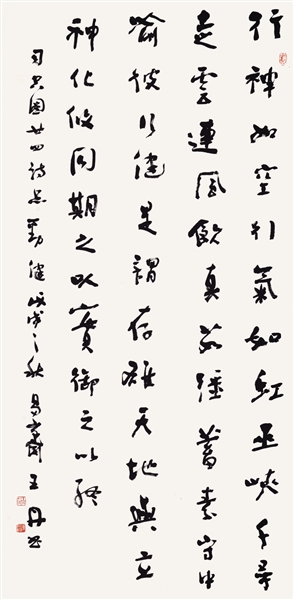 行神如空行氣如虹巫峽千尋
走雲連風飲真茹强蓄素守中
喻彼行健是謂存雄天地與立
神化攸同期之以實御之以終
司空圖廿四詩品勁健戌之秋易王丹